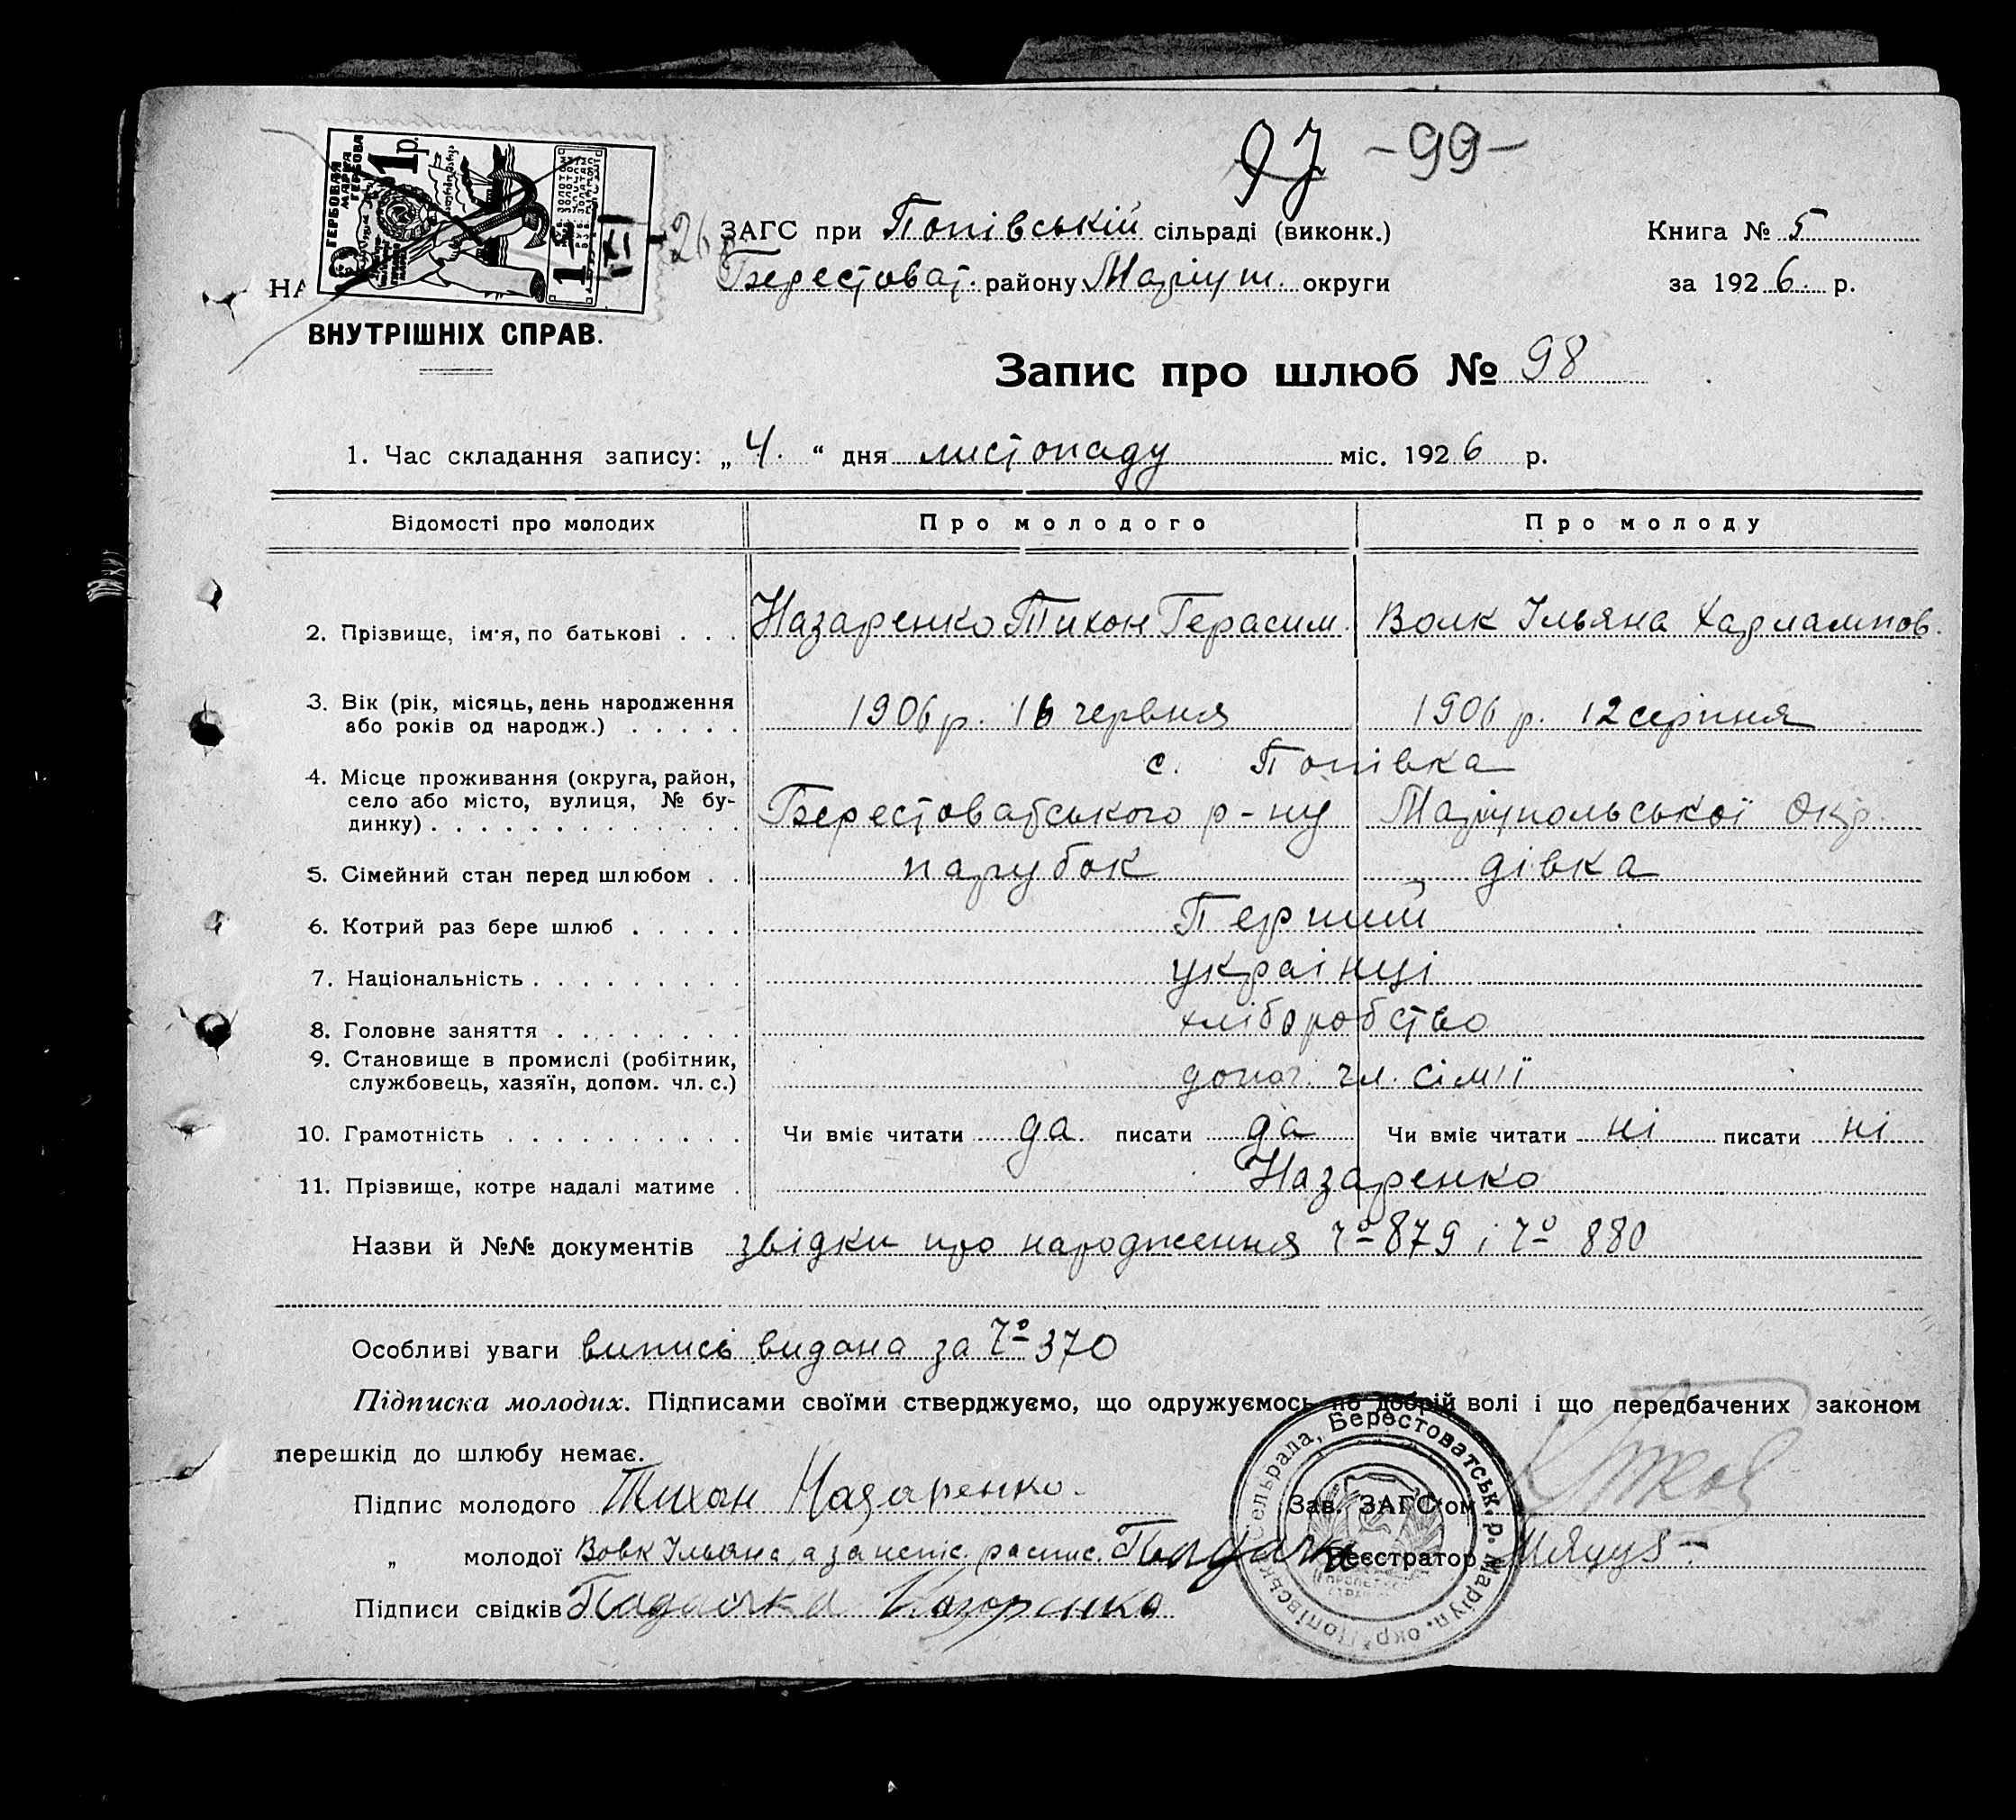 97 -99-
ГЕРБОВАЯ МАРКА
ГЕРБОВА
1 р.
ЗАГС при Попівській сільраді (виконк.) Книга № 5
Берестоват. району Маріуп. округи за 1926 р.
НА
ВНУТРІШНІХ СПРАВ.
Запис про шлюб № 98
1. Час складання запису: „4.“ дня листопаду міс. 1926 р.
Відомості про молодих Про молодого Про молоду
2. Прізвище, ім'я, по батькові . . . Назаренко Тихон Герасим. Волк Ільяна Харлампов.
3. Вік (рік, місяць, день народження
або років од народж.) . . . . . 1906 р. 16 червня 1906 р. 12 серпня
с. Попівка
4. Місце проживання (округа, район,
село або місто, вулиця, № бу- Берестоватського р-ну Маріупольської Окр.
динку) . . . . . . . . . . . . .
5. Сімейний стан перед шлюбом . . парубок дівка
6. Котрий раз бере шлюб . . . . . Перший
7. Національність . . . . . . . . . українці
8. Головне заняття . . . . . . . . хліборобство
9. Становище в промислі (робітник,
службовець, хазяїн, допом. чл. с.) допог. чл. сім'ї
10. Грамотність . . . . . . . . . . Чи вміє читати да писати да Чи вміє читати ні писати ні
11. Прізвище, котре надалі матиме . Назаренко
Назви й №№ документів звідки про народження Ч⁰ 879 і Ч⁰ 880
Особливі уваги випись видана за Ч⁰ 370
Підписка молодих. Підписами своїми стверджуємо, що одружуємось по добрій волі і що передбачених законом
перешкід до шлюбу немає.
Підпис молодого Тихон Назаренко. Зав. ЗАГС'ом
„ молодої Вовк Ільяна, а за непіс. распис. Реєстратор
Підписи свідків Назаренко
Попівськ. Сельрада, Берестоватськ. р. Маріуп. окр.